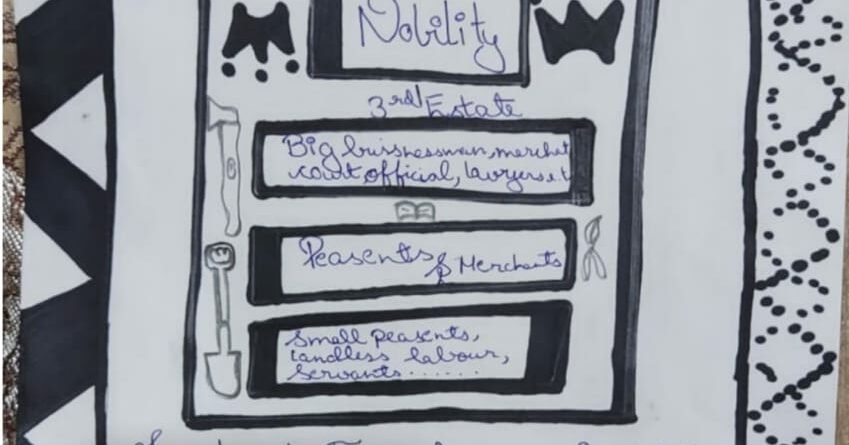 Nobility
3rd Estate
Big buisnessman, merchat
court official, lawyers, et
Peasents & Merchants
Small peasents,
landless labour,
servants.......